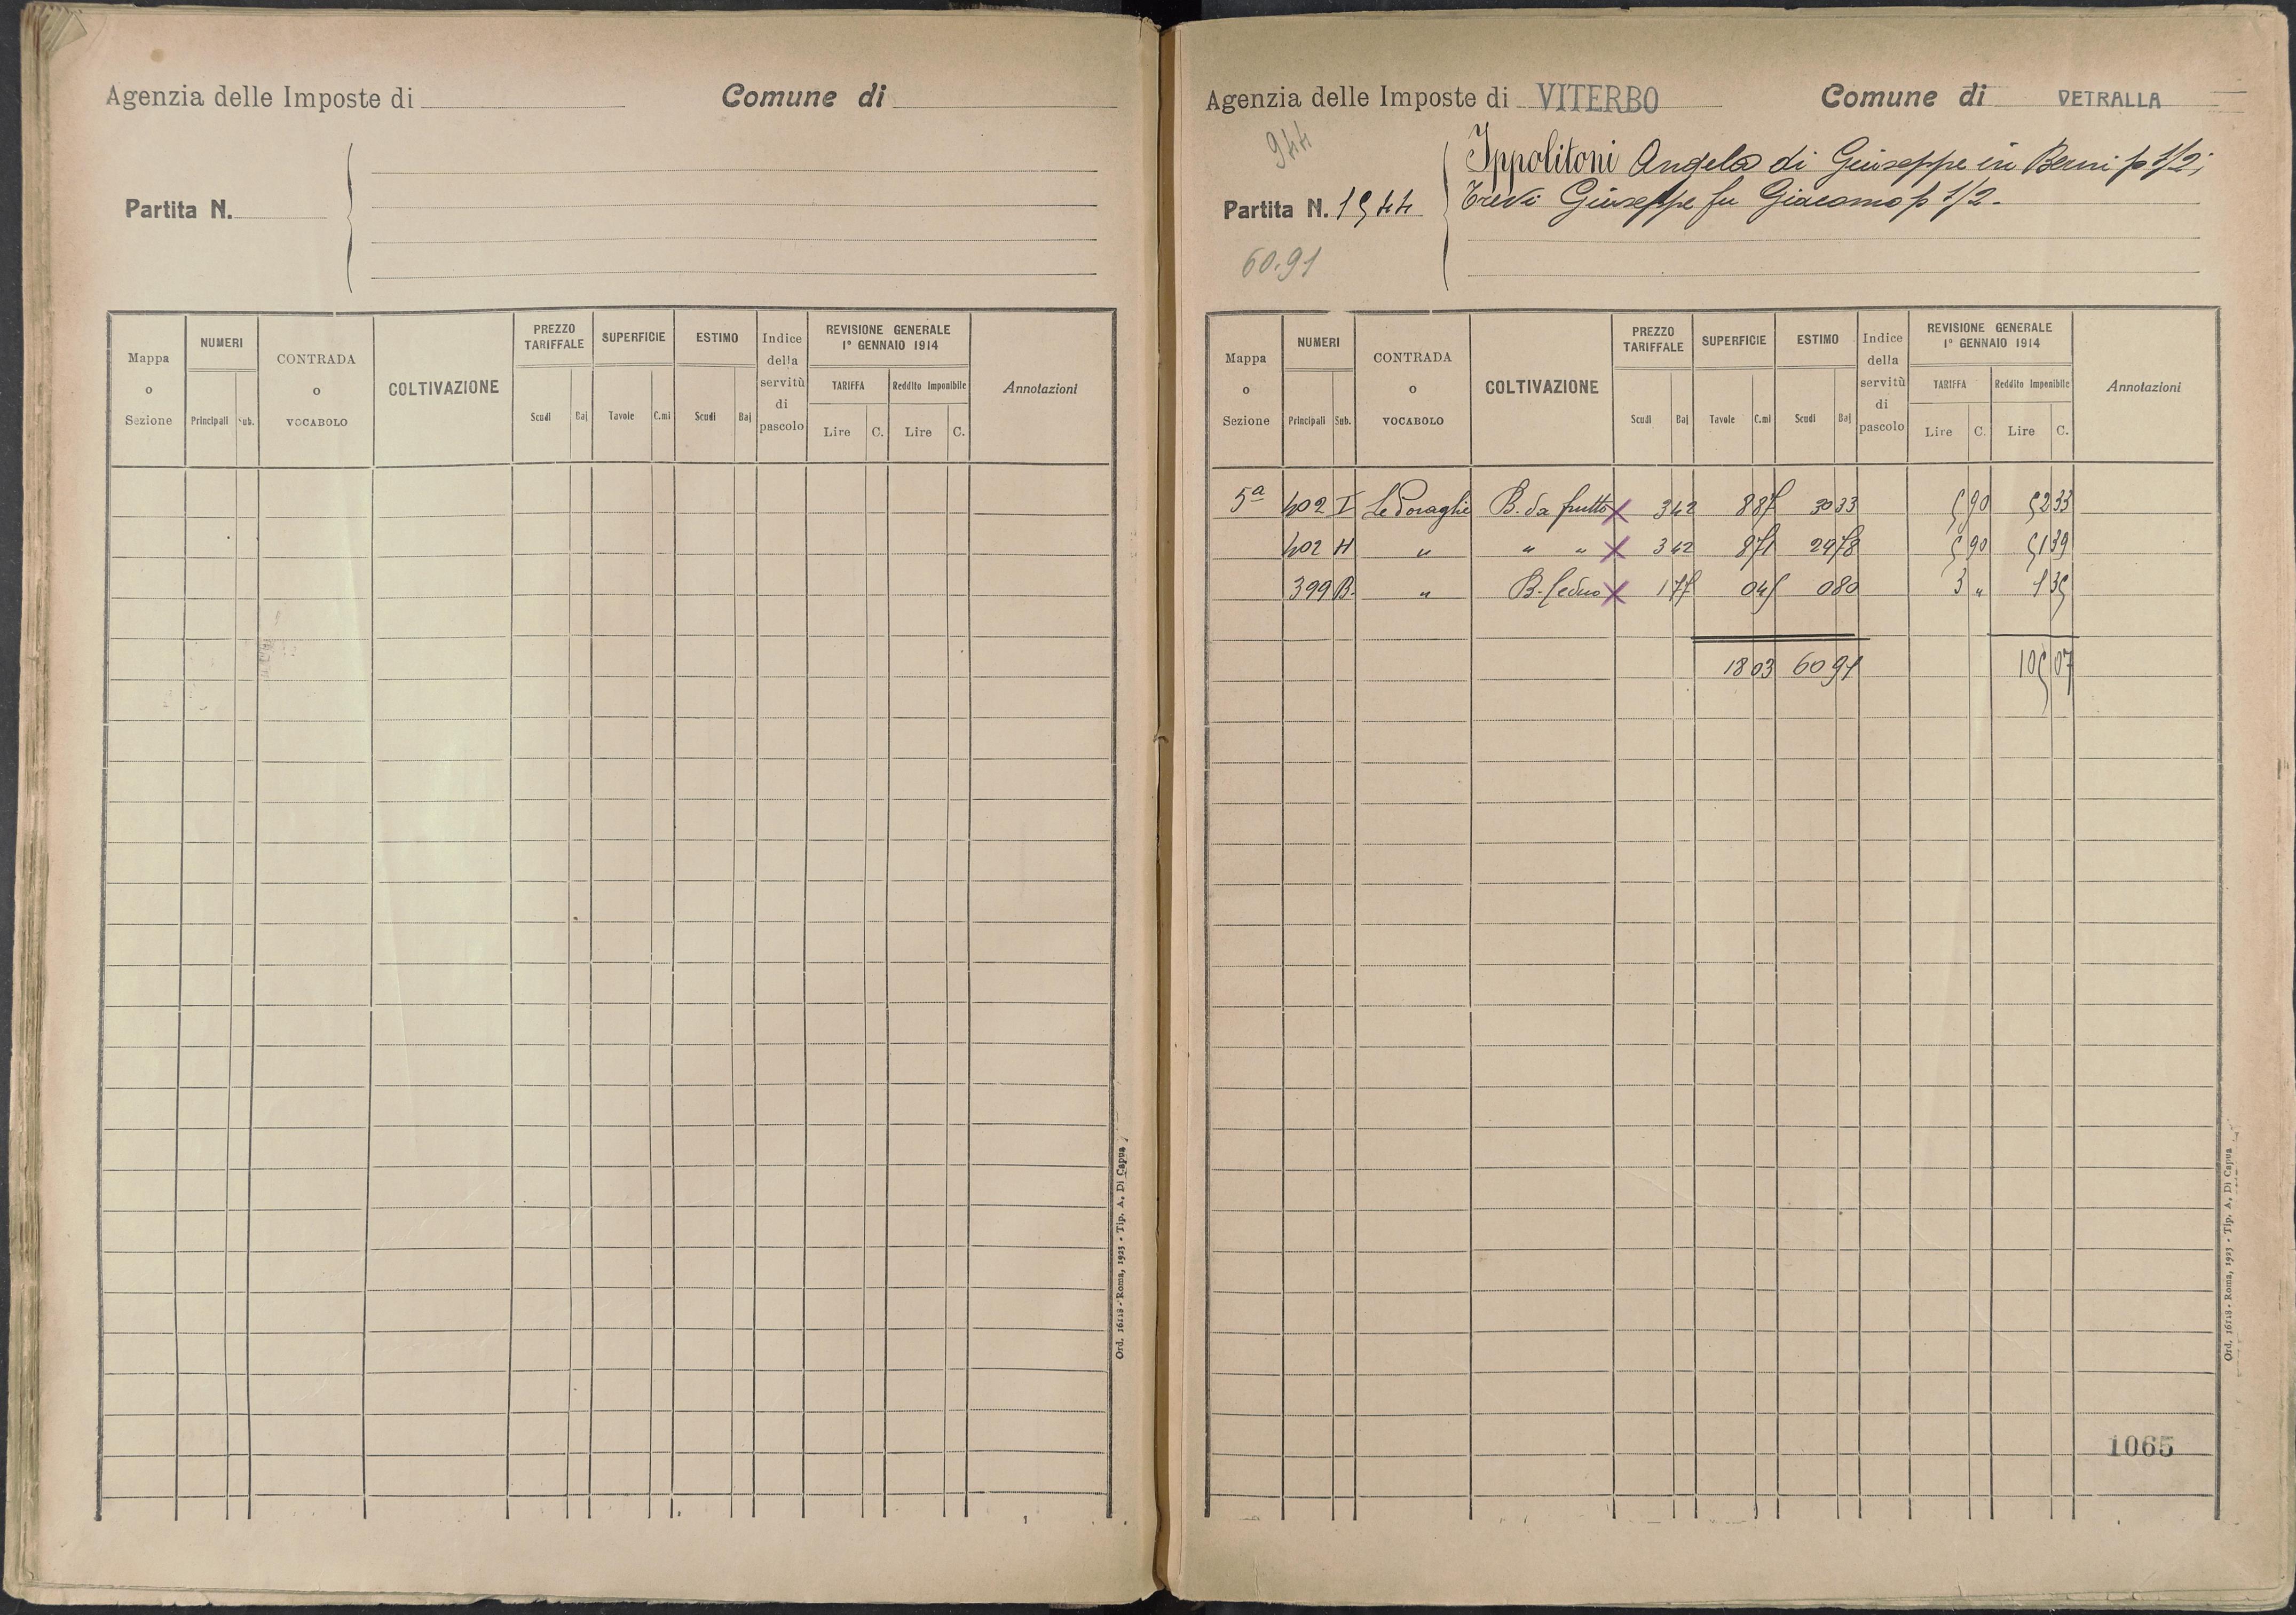 Agenzia delle Imposte di
Comune di
Partita N.
Mappa o Sezione
NUMERI
Principali
Sub.
CONTRADA o VOCABOLO
COLTIVAZIONE
PREZZO TARIFFALE
Scudi
Baj
SUPERFICIE
Tavole
C.mi
ESTIMO
Scudi
Baj
Indice della servitù di pascolo
REVISIONE GENERALE
1° GENNAIO 1914
TARIFFA
Lire
C.
Reddito Imponibile
Lire
C.
Annotazioni
Ord. 16118 - Roma, 1923 - Tip. A. Di Capua
Agenzia delle Imposte di VITERBO
Comune di VETRALLA
944
Partita N. 1544
60.91
Ippolitoni Angela di Giuseppe in Berni p 1/2;
Trevi Giuseppe fu Giacomo p 1/2.
Mappa o Sezione
NUMERI
Principali
Sub.
CONTRADA o VOCABOLO
COLTIVAZIONE
PREZZO TARIFFALE
Scudi
Baj
SUPERFICIE
Tavole
C.mi
ESTIMO
Scudi
Baj
Indice della servitù di pascolo
REVISIONE GENERALE
1° GENNAIO 1914
TARIFFA
Lire
C.
Reddito Imponibile
Lire
C.
Annotazioni
5ª 402 I Le B. da frutto x 3 42 8 87 30 33 5 90 52 33
402 H " " " x 3 42 8 71 29 78 5 90 51 39
399 B. " B. Ceduo x 1 77 0 45 0 80 3 " 1 35
18 03 60 91 105 07
1065
Ord. 16118 - Roma, 1923 - Tip. A. Di Capua